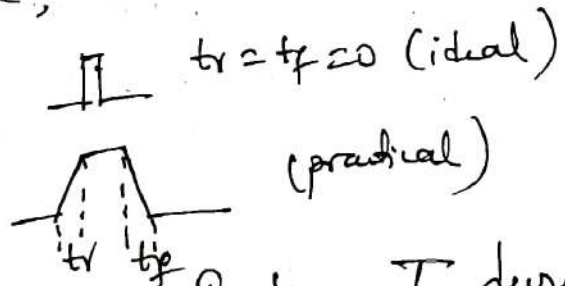 tr = tf = 0 (ideal)
(practical)
tr tf